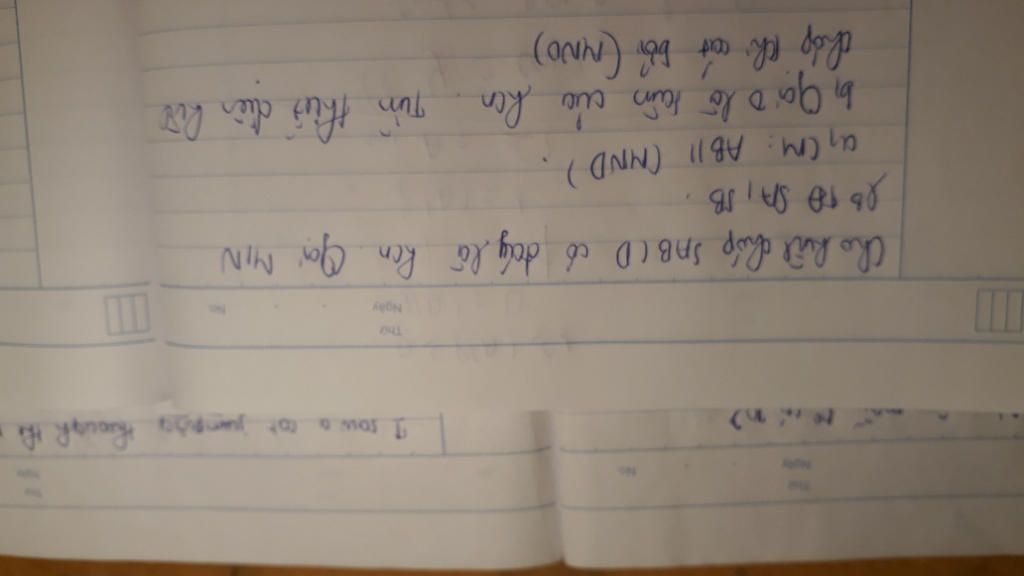 Thứ
Ngày
No.
Cho hình chóp SABCD có đáy là hcn. Gọi M, N
là TĐ SA, SB.
a, CM: AB // (MND).
b, Gọi O là tâm của hcn. Tìm thiết diện hình
chóp khi cắt bởi (MNO)
Thứ
Ngày
No.
Thứ
Ngày
I saw a cat jumping through the